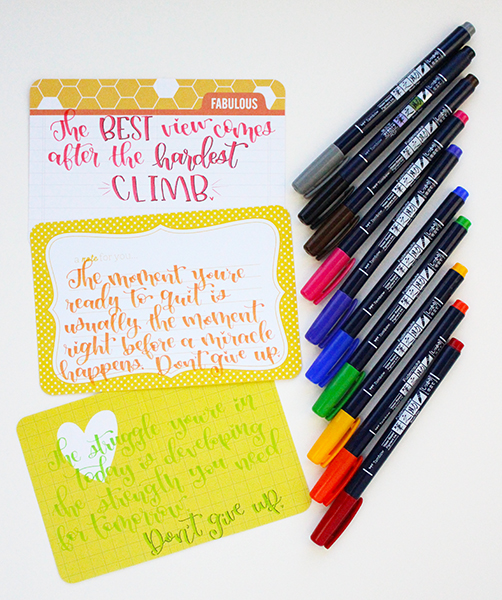 FABULOUS
The BEST view comes
after the hardest
CLIMB.
a note for you...
The moment you're
ready to quit is
usually the moment
right before a miracle
happens. Don't give up.
The struggle you're in
today is developing
the strength you need
for tomorrow.
Don't give up.